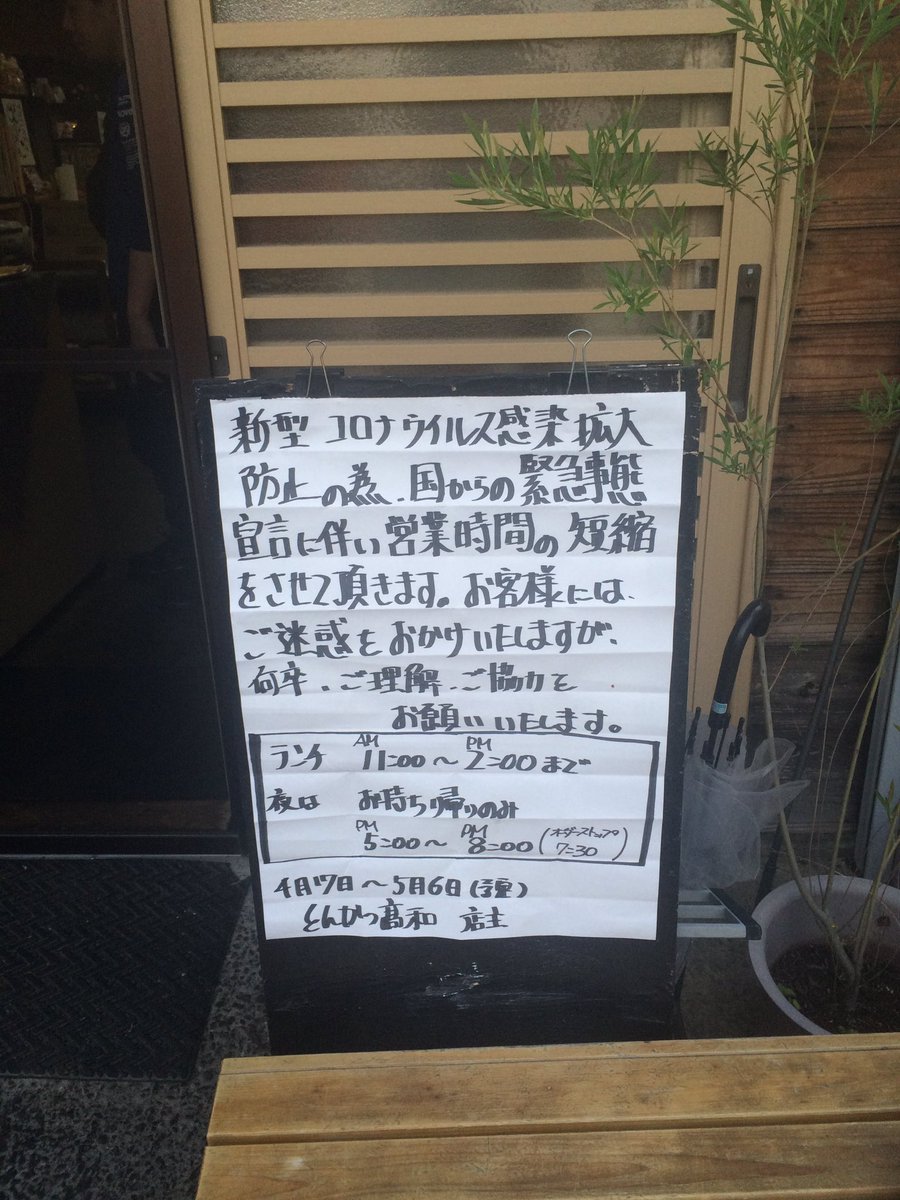 新型コロナウイルス感染拡大
防止の為、国からの緊急事態
宣言に伴い営業時間の短縮
をさせて頂きます。お客様には、
ご迷惑をおかけいたしますが、
何卒、ご理解、ご協力を
お願いいたします。
ランチ AM11:00〜PM2:00まで
夜は お持ち帰りのみ
PM5:00〜PM8:00(オーダーストップ7:30)
4月17日〜5月6日(予定)
とんかつ髙和 店主